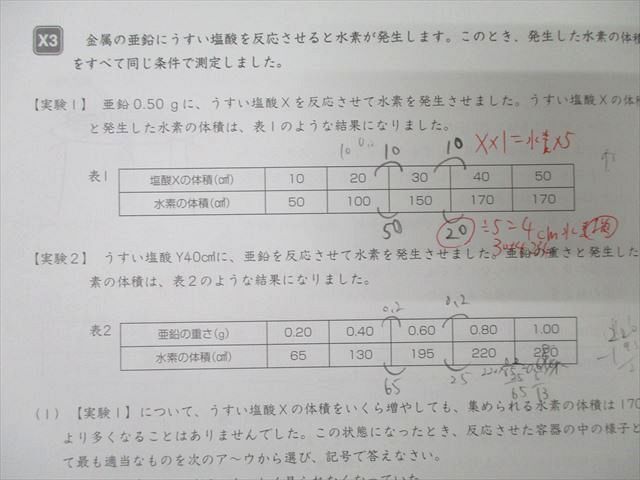 X3 金属の亜鉛にうすい塩酸を反応させると水素が発生します。このとき、発生した水素の体積
をすべて同じ条件で測定しました。
【実験1】 亜鉛0.50 gに、うすい塩酸Xを反応させて水素を発生させました。うすい塩酸Xの体積
と発生した水素の体積は、表1のような結果になりました。
10 10 10 X×1=水素×5
表1 塩酸Xの体積(㎤) 10 20 30 40 50
水素の体積(㎤) 50 100 150 170 170
50 20 ÷5=4
【実験2】 うすい塩酸Y40㎤に、亜鉛を反応させて水素を発生させました。亜鉛の重さと発生した
素の体積は、表2のような結果になりました。
0.2 0.2
表2 亜鉛の重さ(g) 0.20 0.40 0.60 0.80 1.00
水素の体積(㎤) 65 130 195 220 220
65 25
(1) 【実験1】について、うすい塩酸Xの体積をいくら増やしても、集められる水素の体積は170
より多くなることはありませんでした。この状態になったとき、反応させた容器の中の様子と
て最も適当なものを次のア〜ウから選び、記号で答えなさい。